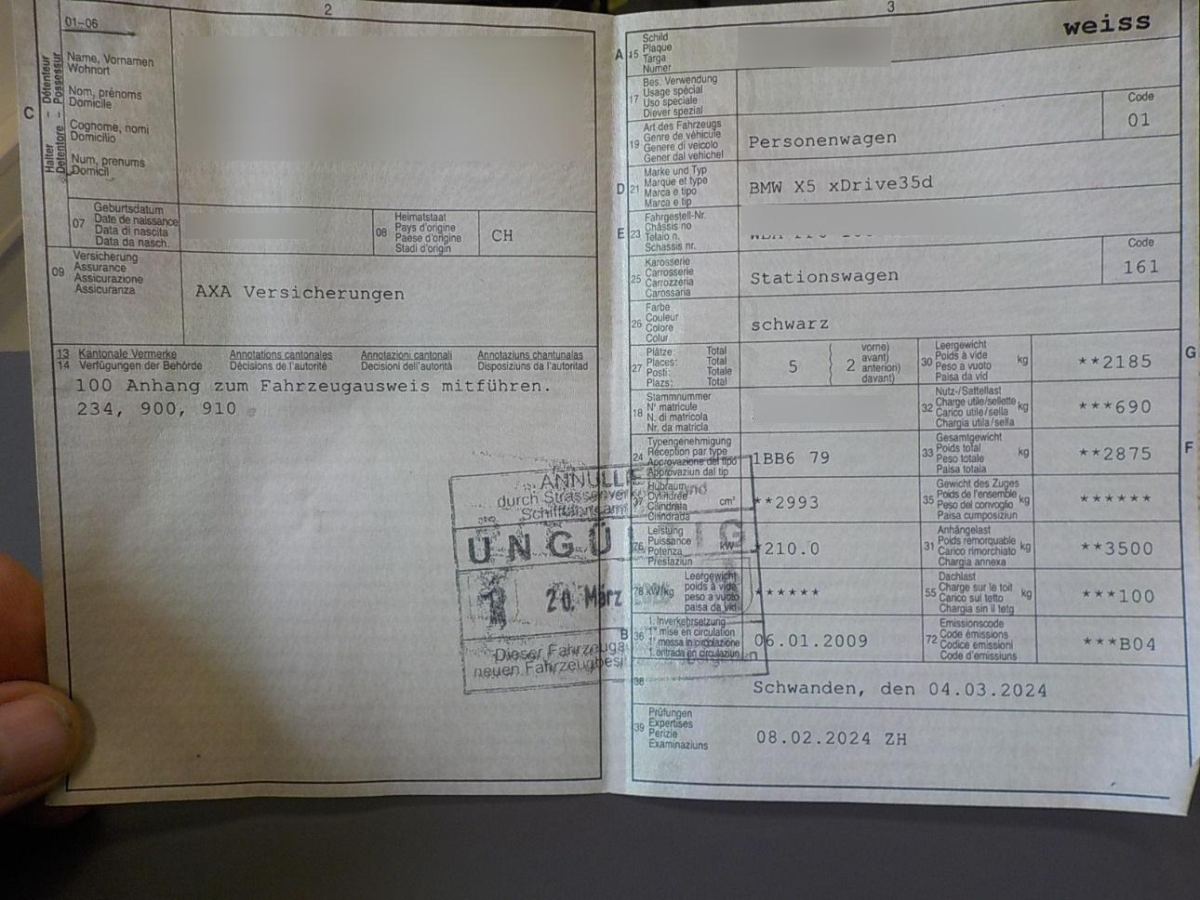 2
01–06
C
Halter – Détenteur
Detentore – Possessur
Name, Vornamen
Wohnort
Nom, prénoms
Domicile
Cognome, nomi
Domicilio
Num, prenums
Domicil
07
Geburtsdatum
Date de naissance
Data di nascita
Data da nasch.
08
Heimatstaat
Pays d'origine
Paese d'origine
Stadi d'origin
CH
09
Versicherung
Assurance
Assicurazione
Assicuranza
AXA Versicherungen
13 Kantonale Vermerke Annotations cantonales Annotazioni cantonali Annotaziuns chantunalas
14 Verfügungen der Behörde Décisions de l'autorité Decisioni dell'autorità Disposiziuns da l'autoritad
100 Anhang zum Fahrzeugausweis mitführen.
234, 900, 910
ANNULLIE
durch Strassenver und
Schifffahrtsamt
UNGÜ IG
1 20. März
Dieser Fahrzeuga
neuen Fahrzeugbesi
3
weiss
A 15
Schild
Plaque
Targa
Numer
17
Bes. Verwendung
Usage spécial
Uso speciale
Diever spezial
19
Art des Fahrzeugs
Genre de véhicule
Genere di veicolo
Gener dal vehichel
Personenwagen
Code
01
D 21
Marke und Typ
Marque et type
Marca e tipo
Marca e tip
BMW X5 xDrive35d
E 23
Fahrgestell-Nr.
Châssis no
Telaio n.
Schassis nr.
25
Karosserie
Carrosserie
Carrozzeria
Carossaria
Stationswagen
Code
161
26
Farbe
Couleur
Colore
Colur
schwarz
27
Plätze: Total
Places: Total
Posti: Totale
Plazs: Total
5
2
vorne)
avant)
anteriori)
davant)
G
30
Leergewicht
Poids à vide
Peso a vuoto
Paisa da vid
kg
**2185
18
Stammnummer
N° matricule
N. di matricola
Nr. da matricla
32
Nutz-/Sattellast
Charge utile/sellette
Carico utile/sella
Chargia utila/sella
kg
***690
24
Typengenehmigung
Réception par type
Approvazione del tipo
Approvaziun dal tip
1BB6 79
F
33
Gesamtgewicht
Poids total
Peso totale
Paisa totala
kg
**2875
37
Hubraum
Cylindrée
Cilindrata
Cilindrada
cm³
**2993
35
Gewicht des Zuges
Poids de l'ensemble
Peso del convoglio
Paisa cumposiziun
kg
******
76
Leistung
Puissance
Potenza
Prestaziun
kW
*210.0
31
Anhängelast
Poids remorquable
Carico rimorchiato
Chargia annexa
kg
**3500
78 kW/kg
Leergewicht
poids à vide
peso a vuoto
paisa da vid
******
55
Dachlast
Charge sur le toit
Carico sul tetto
Chargia sin il tetg
kg
***100
B 36
1. Inverkehrsetzung
1re mise en circulation
1a messa in circolazione
1. entrada en circulaziun
06.01.2009
72
Emissionscode
Code émissions
Codice emissioni
Code d'emissiuns
***B04
38
Schwanden, den 04.03.2024
39
Prüfungen
Expertises
Perizie
Examinaziuns
08.02.2024 ZH